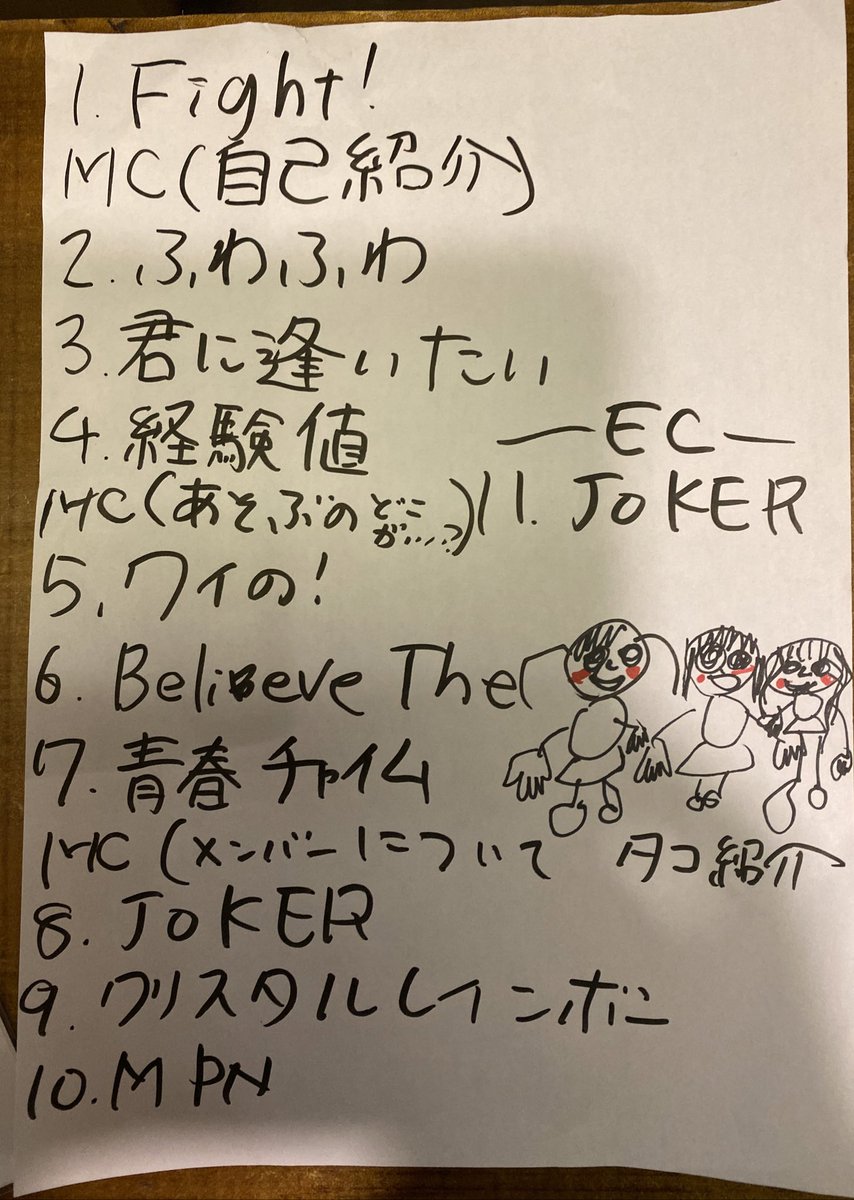 1. Fight!
MC(自己紹介)
2. ふわふわ
3. 君に逢いたい
4. 経験値
MC(あそぶのどこが…?)
5. ワイの!
6. Believe The
7. 青春チャイム
MC(メンバーについて タコ紹介
8. JOKER
9. クリスタルレインボー
10. MPN
—EC—
11. JOKER